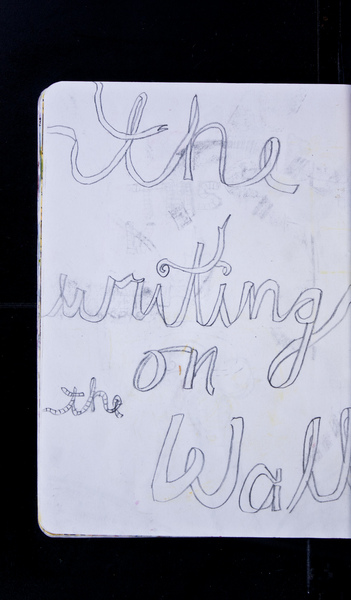 the
writing
on
the
Wall